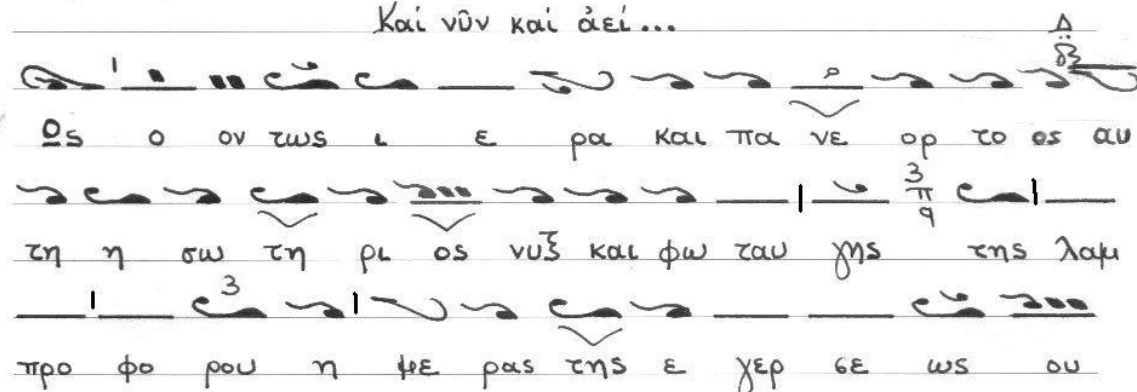 Καί νῦν καί ἀεί...
Ως ο ον τως ι ε ρα και πα νε ορ το ος αυ
τη η σω τη ρι ος νυξ και φω ταυ γης της λαμ
προ φο ρου η με ρας της ε γερ σε ως ου